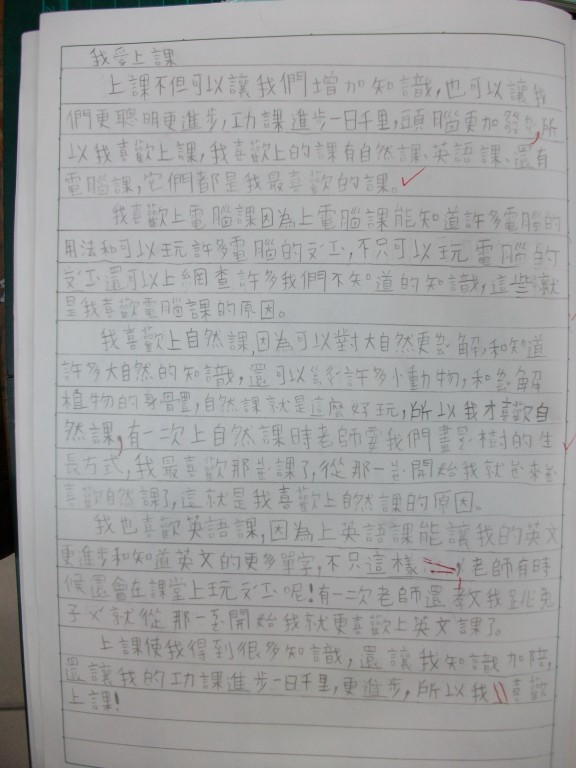 我愛上課
上課不但可以讓我們增加知識，也可以讓我
們更聰明更進步，功課進步一日千里，頭腦更加發，所
以我喜歡上課，我喜歡上的課有自然課、英語課、還有
電腦課，它們都是我最喜歡的課。
我喜歡上電腦課因為上電腦課能知道許多電腦的
用法和可以玩許多電腦的ㄡˊㄒㄧˋ，不只可以玩電腦的
還可以上網查許多我們不知道的知識，這些就
是我喜歡電腦課的原因。
我喜歡上自然課，因為可以對大自然更解，和知道
許多大自然的知識，還可以許多小動物，和解
植物的身體，自然課就是這麼好玩，所以我才喜歡自
然課，有一次上自然課時老師要我們畫樹的生
長方式，我最喜歡那課了，從那一開始我就
喜歡自然課了，這就是我喜歡上自然課的原因。
我也喜歡英語課，因為上英語課能讓我的英文
更進步和知道英文的更多單字，不只這樣，老師有時
候還會在課堂上玩呢！有一次老師還教我兔
子就從那一開始我就更喜歡上英文課了。
上課使我得到很多知識，還讓我知識加陪，
還讓我的功課進步一日千里，更進步，所以我喜歡
上課！